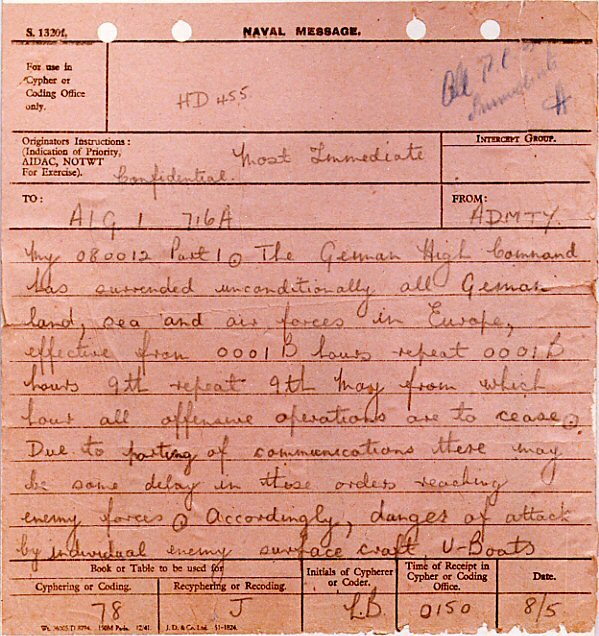 S. 1320f.
NAVAL MESSAGE.
For use in
Cypher or
Coding Office
only.
HD 455
All
Immediate
Originators Instructions:
(Indication of Priority,
AIDAC, NOTWT
For Exercise).
Most Immediate
Confidential.
INTERCEPT GROUP.
TO:
AIG 1 716A
FROM:
ADMTY.
My 080012 Part 1 . The German High Command
has surrended unconditionally all German
land, sea and air forces in Europe,
effective from 0001B hours repeat 0001B
hours 9th repeat 9th May from which
hour all offensive operations are to cease .
Due to of communications there may
be some delay in these orders reaching
enemy forces . Accordingly, danger of attack
by individual enemy surface craft, U-Boats
Book or Table to be used for
Cyphering or Coding.
Recyphering or Recoding.
Initials of Cypherer
or Coder.
Time of Receipt in
Cypher or Coding
Office.
Date.
78
J
L.B.
0150
8/5
12/41. J. D. & Co. Ltd. 51-1824.